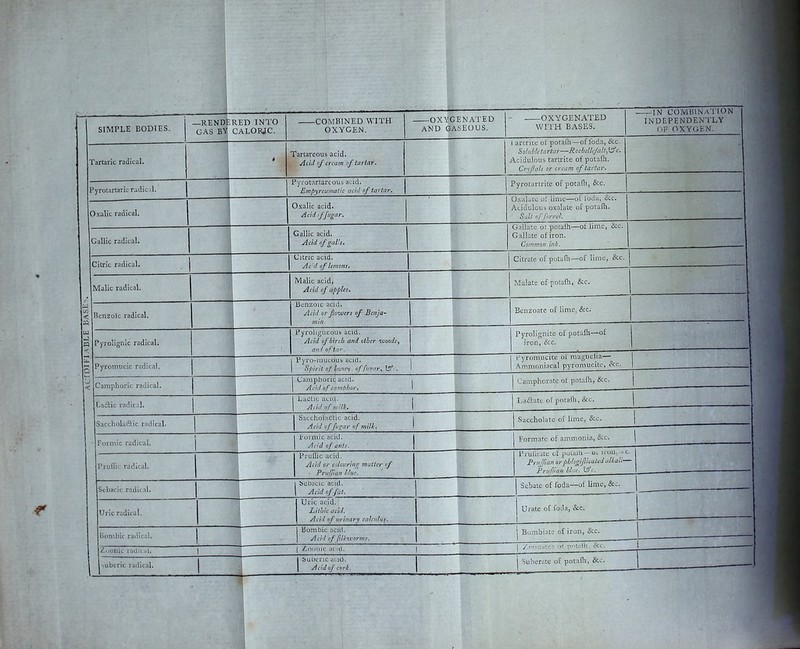 SIMPLE BODIES.
—RENDERED INTO
GAS BY CALORIC.
——COMBINED WITH
OXYGEN.
——OXYGENATED
AND GASEOUS.
——OXYGENATED
WITH BASES.
——IN COMBINATION
INDEPENDENTLY
OF OXYGEN.
ACIDIFIABLE BASES.
Tartaric radical.
Tartareous acid.
Acid of cream of tartar.
Tartrite of potaſh—of ſoda, &c.
Soluble tartar—Rochelle ſalt, &c.
Acidulous tartrite of potaſh.
Cryſtals or cream of tartar.
Pyrotartaric radical.
Pyrotartareous acid.
Empyreumatic acid of tartar.
Pyrotartrite of potaſh, &c.
Oxalic radical.
Oxalic acid.
Acid of ſugar.
Oxalate of lime—of ſoda, &c.
Acidulous oxalate of potaſh.
Salt of ſorrel.
Gallic radical.
Gallic acid.
Acid of gal's.
Gallate of potaſh—of lime, &c.
Gallate of iron.
Common ink.
Citric radical.
Citric acid.
Acid of lemons.
Citrate of potaſh—of lime, &c.
Malic radical.
Malic acid,
Acid of apples.
Malate of potaſh, &c.
Benzoic radical.
Benzoic acid.
Acid or flowers of Benja-
min
Benzoate of lime, &c.
Pyrolignic radical.
Pyroligneous acid.
Acid of birch and other woods,
and of tar.
Pyrolignite of potaſh—of
iron, &c.
Pyromucic radical.
Pyro-mucous acid.
Spirit of honey, of ſugar, &c.
Pyromucite of magneſia—
Ammoniacal pyromucite, &c.
Camphoric radical.
Camphoric acid.
Acid of camphor.
Camphorate of potaſh, &c.
Lactic radical.
Lactic acid.
Acid of milk.
Lactate of potaſh, &c.
Saccholactic radical.
Saccholactic acid.
Acid of ſugar of milk.
Saccholate of lime, &c.
Formic radical.
Formic acid.
Acid of ants.
Formate of ammonia, &c.
Pruſſic radical.
Pruſſic acid.
Acid or colouring matter of
Pruſſian blue.
Pruſſiate of potaſh—of iron, &c.
Pruſſian or phlogiſticated alkali—
Pruſſian blue, &c.
Sebacic radical.
Sebacic acid.
Acid of fat.
Sebate of ſoda—of lime, &c.
Uric radical.
Uric acid.
Lithic acid.
Acid of urinary calculus.
Urate of ſoda, &c.
Bombic radical.
Bombic acid.
Acid of ſilkworms.
Bombiate of iron, &c.
Zoonic radical.
Zoonic acid.
Zoonates of potaſh, &c.
Suberic radical.
Suberic acid.
Acid of cork.
Suberate of potaſh, &c.